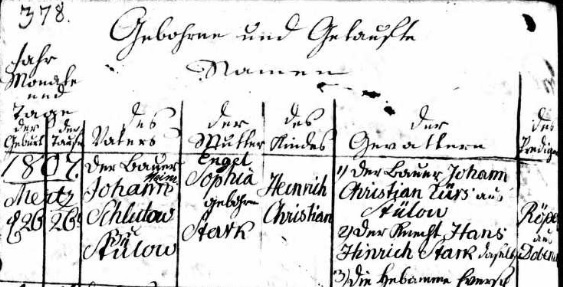 378.
Gebohrne und Getaufte
Namen
Jahr
Monate
und
Tage
der
Geburt
der
Taufe
des
Vaters
der
Mutter
des
Kindes
der
Gevattern
des
Prediger
1807.
Mertz
26
26
der Bauer
Johann
Heinr
Schlutow
zu
Stülow
Engel
Sophia
gebohrne
Stark
Heinrich
Christian
1) der Bauer Johann
Christian Türs aus
Stülow
2) der Knecht Hans
Hinrich Stark daselbst
3) die Hebamme
Röper
aus